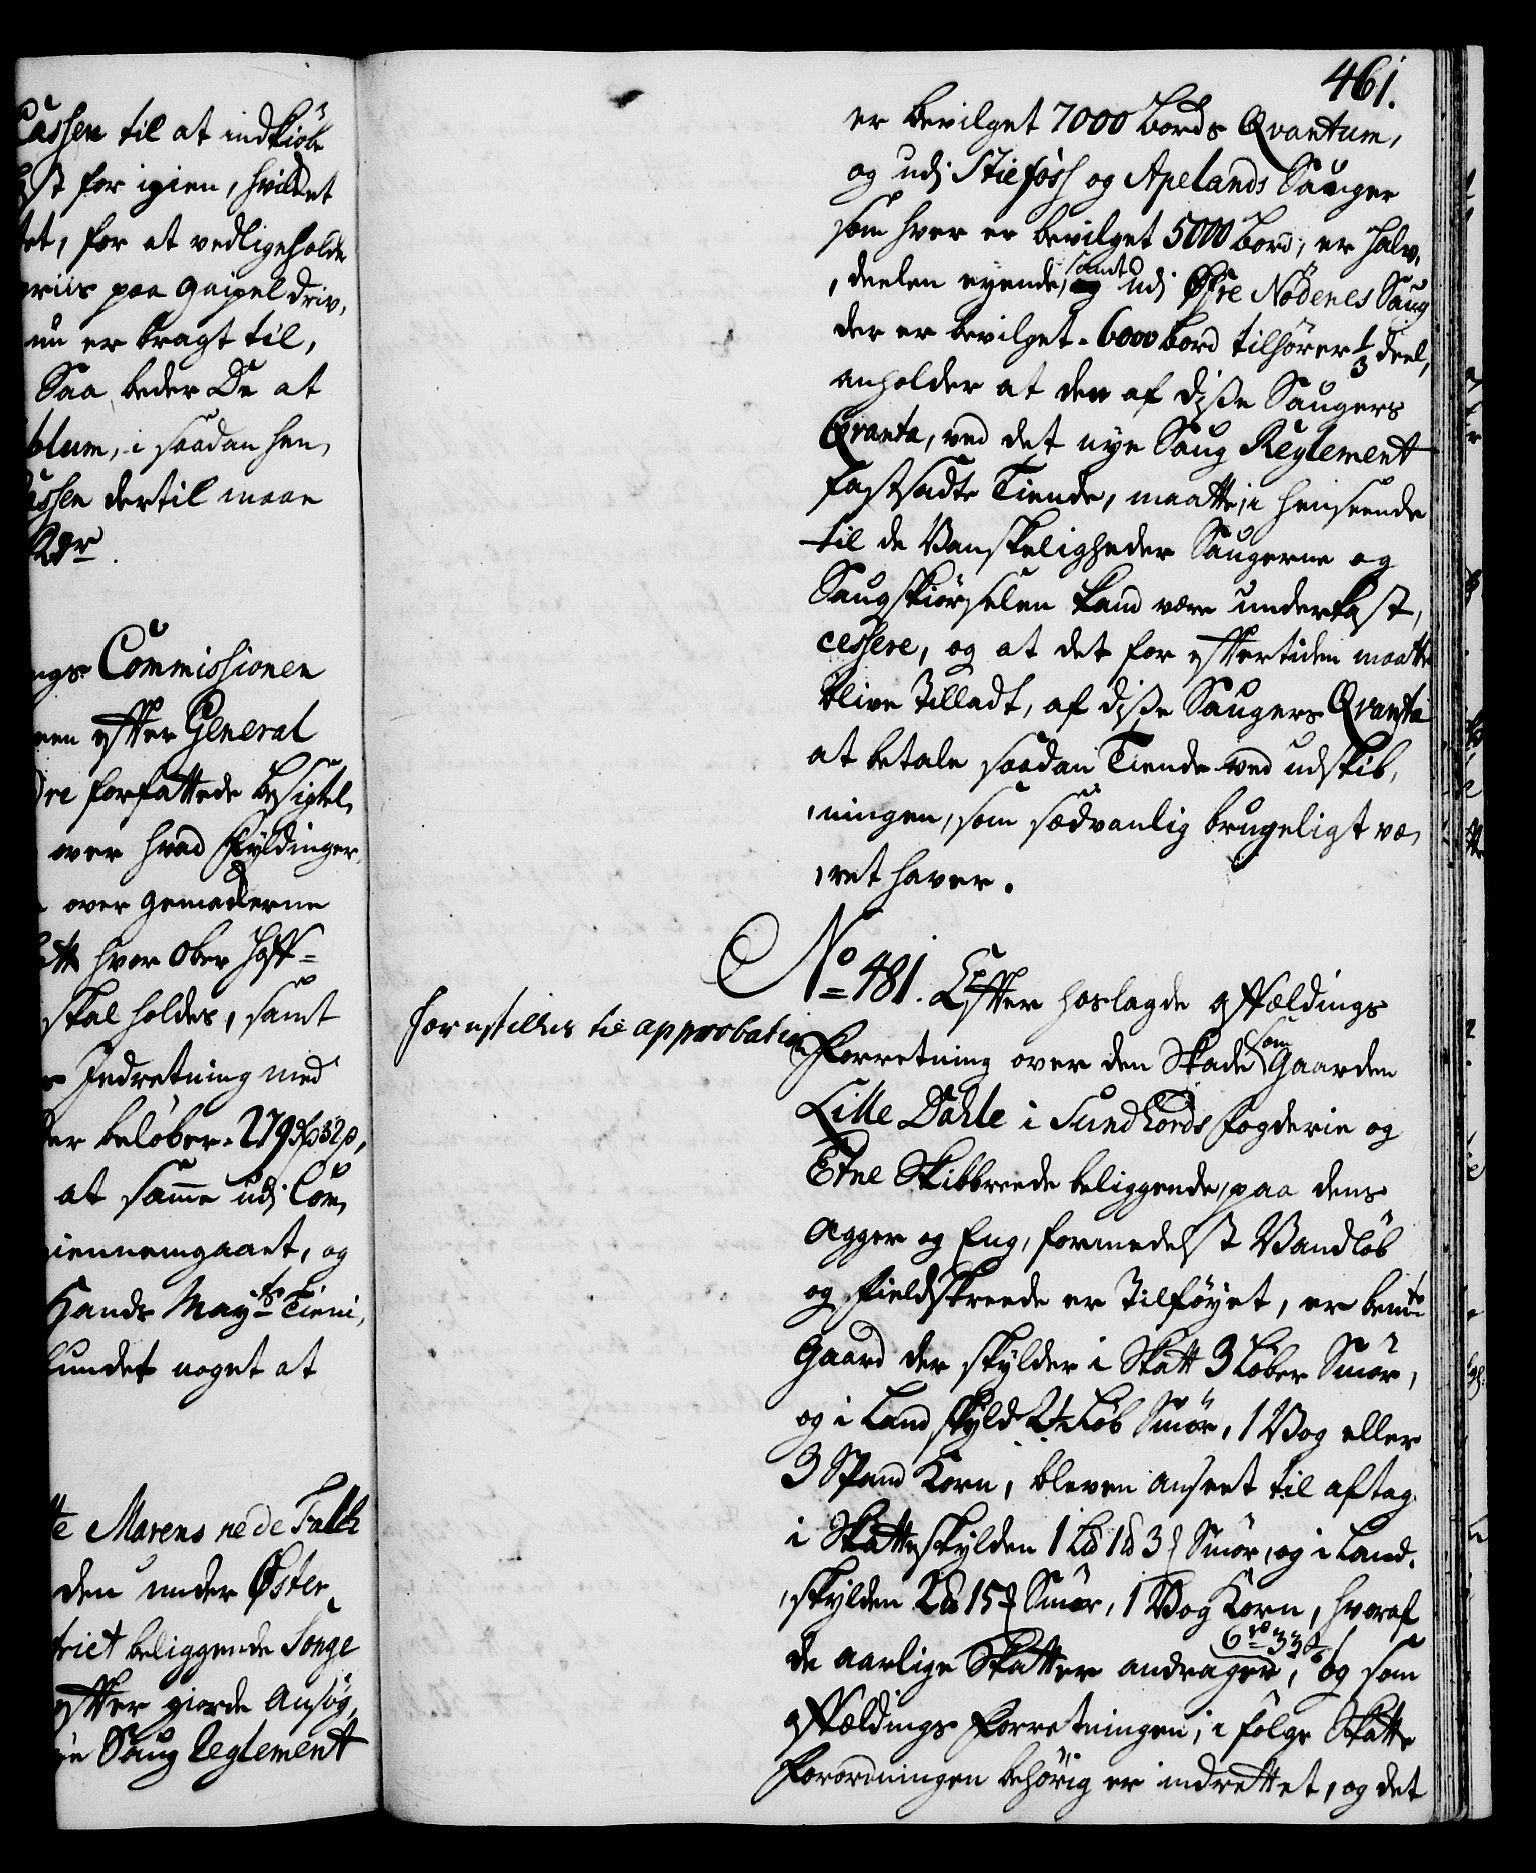 Cassen til at indkiøbe
for igien, hvilket
for at vedligeholde
paa Gaipel driv,
nu er bragt til,
Saa beder De at
i saadan hen,
dertil maae
Commissionen
efter General
forfattede besigtel,
over hvad Fyldinger
over Gemakerne
hvor Ober Hoff=
skal holdes, samt
Indretning med
beløber. 279 32 ß,
at samme udj Com,
giennemgaaet, og
Hands Mayts Tieni,
fundet noget at
Marens née de Falck
den under Øster,
beliggende Songe
efter giorde Ansøg,
Saug Reglement
461.
er bevilget 7000 Bords Qvantum,
og udj Stiefoss og Apelands Sauger
som hver er bevilget 5000 Bord, er halv,
,deelen eyende, samt udj Øfre Nødenes Saug
der er bevilget 6000 Bord tilhører 1/3 deel,
anholder at den af disse Saugers
Qvanta, ved det nye Saug Reglement
fastsadte Tiende, maatte, i henseende
til de Vanskeligheder Saugerne og
Saugskiørselen kand være underkast,
cessere, og at det for eftertiden maatte
blive Tilladt, af disse Saugers Qvanta
at betale saadan Tiende ved udskib,
,ningen, som sædvanlig brugeligt væ,
,ret haver.
No 481. Efter hoslagde affældings
forestilles til approbation
Forretning over den Skade som Gaarden
Lille Dahle i Sundhords fogderie og
Etne Skibbreede beliggende, paa dens
Agger og Eng, formedelst Vandløb
og Fieldskreede er Tilføyet, er bemte
Gaard der skylder i Skatt 3 Løber Smør,
og i Landskyld 2½ Løb Smør, 1 Vog eller
3 Spand Korn, bleven anseet til aftag
i Skatteskylden 1 Lb 1 lb 3 Smør, og i Land,
,skylden 2 lb 15 Smør, 1 Vog Korn, hvoraf
de aarlige Skatter andrager 6 rd 33 ß, og som
afældings Forretningen, i følge Skatte
Forordningen behørig er indrettet, og det